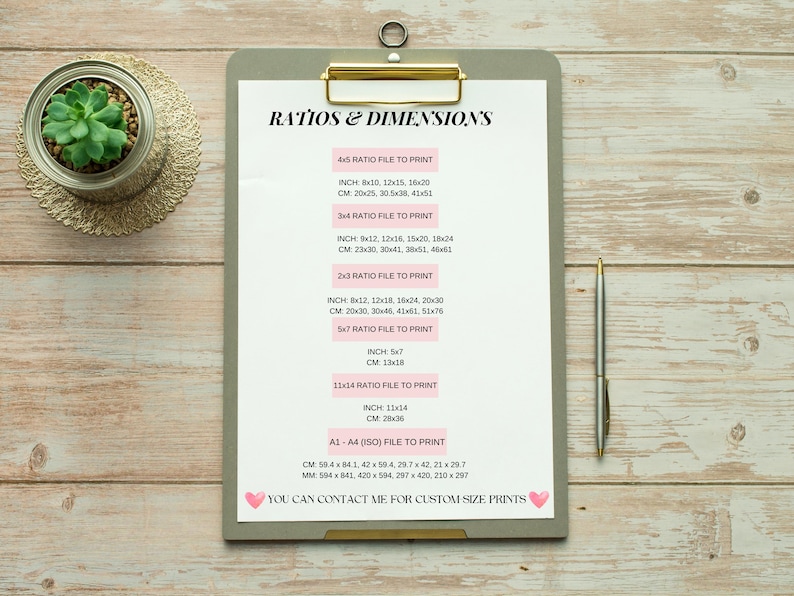 RATIOS & DIMENSIONS
4x5 RATIO FILE TO PRINT
INCH: 8x10, 12x15, 16x20
CM: 20x25, 30.5x38, 41x51
3x4 RATIO FILE TO PRINT
INCH: 9x12, 12x16, 15x20, 18x24
CM: 23x30, 30x41, 38x51, 46x61
2x3 RATIO FILE TO PRINT
INCH: 8x12, 12x18, 16x24, 20x30
CM: 20x30, 30x46, 41x61, 51x76
5x7 RATIO FILE TO PRINT
INCH: 5x7
CM: 13x18
11x14 RATIO FILE TO PRINT
INCH: 11x14
CM: 28x36
A1 - A4 (ISO) FILE TO PRINT
CM: 59.4 x 84.1, 42 x 59.4, 29.7 x 42, 21 x 29.7
MM: 594 x 841, 420 x 594, 297 x 420, 210 x 297
YOU CAN CONTACT ME FOR CUSTOM-SIZE PRINTS